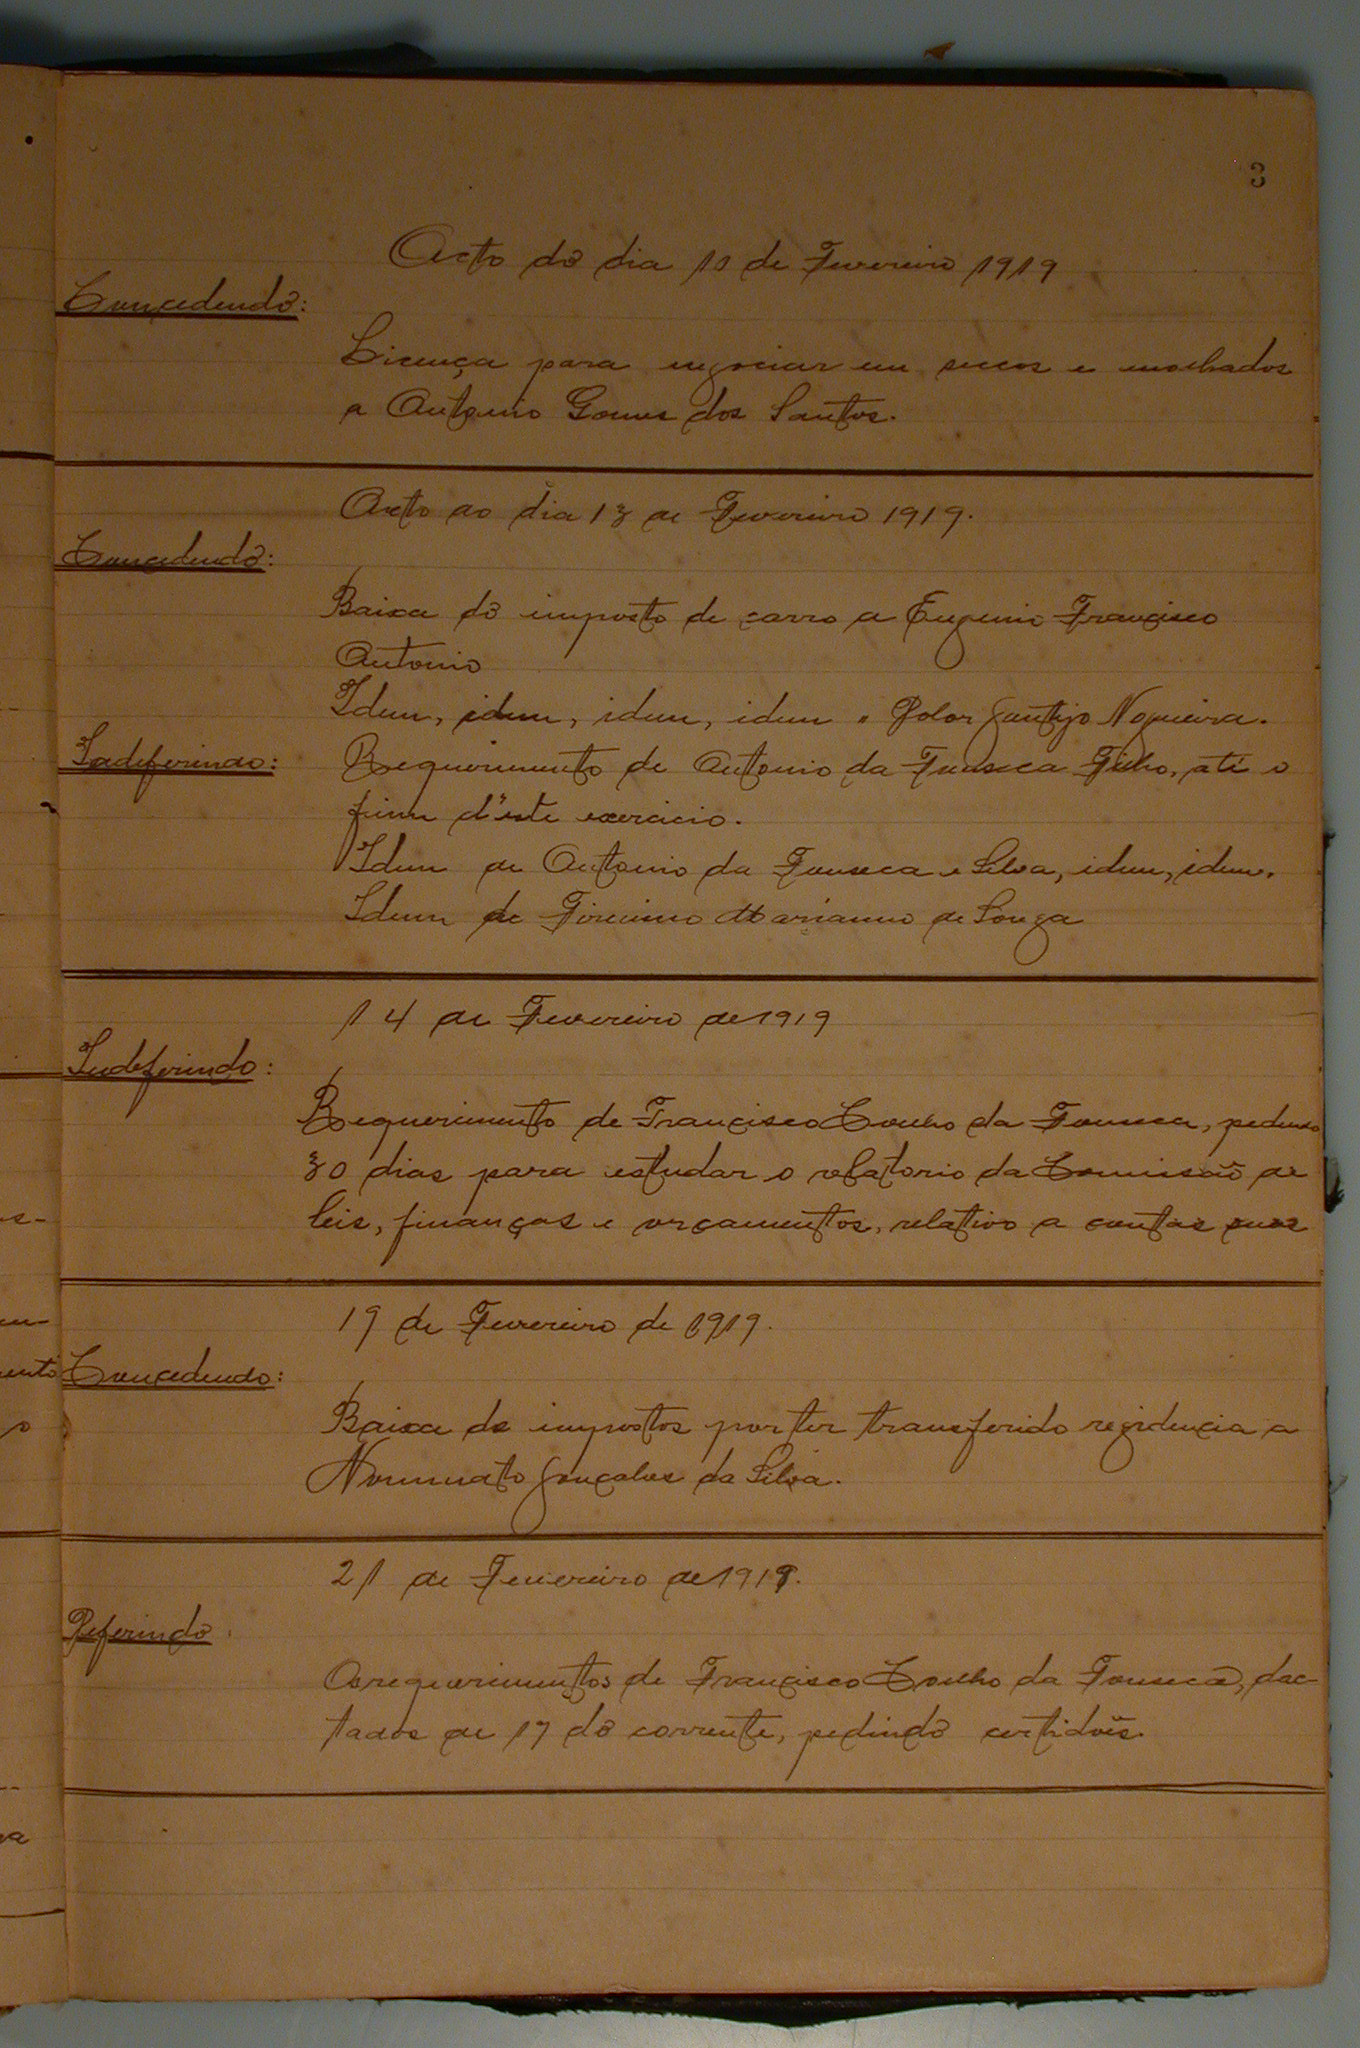 3
Acto do dia 10 de Fevereiro 1919
Concedendo:
Licença para negociar em seccos e molhados
a Antonio Gomes dos Santos.
Acto do dia 13 de Fevereiro 1919.
Concedendo:
Baixa do imposto de carro a Eugenio Francisco
Antonio
Idem, idem, idem, idem " Nogueira.
Indeferindo: Requerimento de Antonio da Fonseca Filho, até o
fim d'este exercicio.
Idem de Antonio da Fonseca e Silva, idem, idem.
Idem de Firmino Marianno de Souza
14 de Fevereiro de 1919
Indeferindo:
Requerimento de Francisco Coelho da Fonseca, pedindo
30 dias para estudar o relatorio da Comissão de
leis, finanças e orçamentos, relativo a contas suas
19 de Fevereiro de 1919.
Concedendo:
Baixa de impostos por ter transferido rezidencia a
Nonnato Gonçalves da Silva.
21 de Fevereiro de 1919.
Deferindo.
Os requerimentos de Francisco Coelho da Fonseca, dac-
tados de 17 do corrente, pedindo certidões.